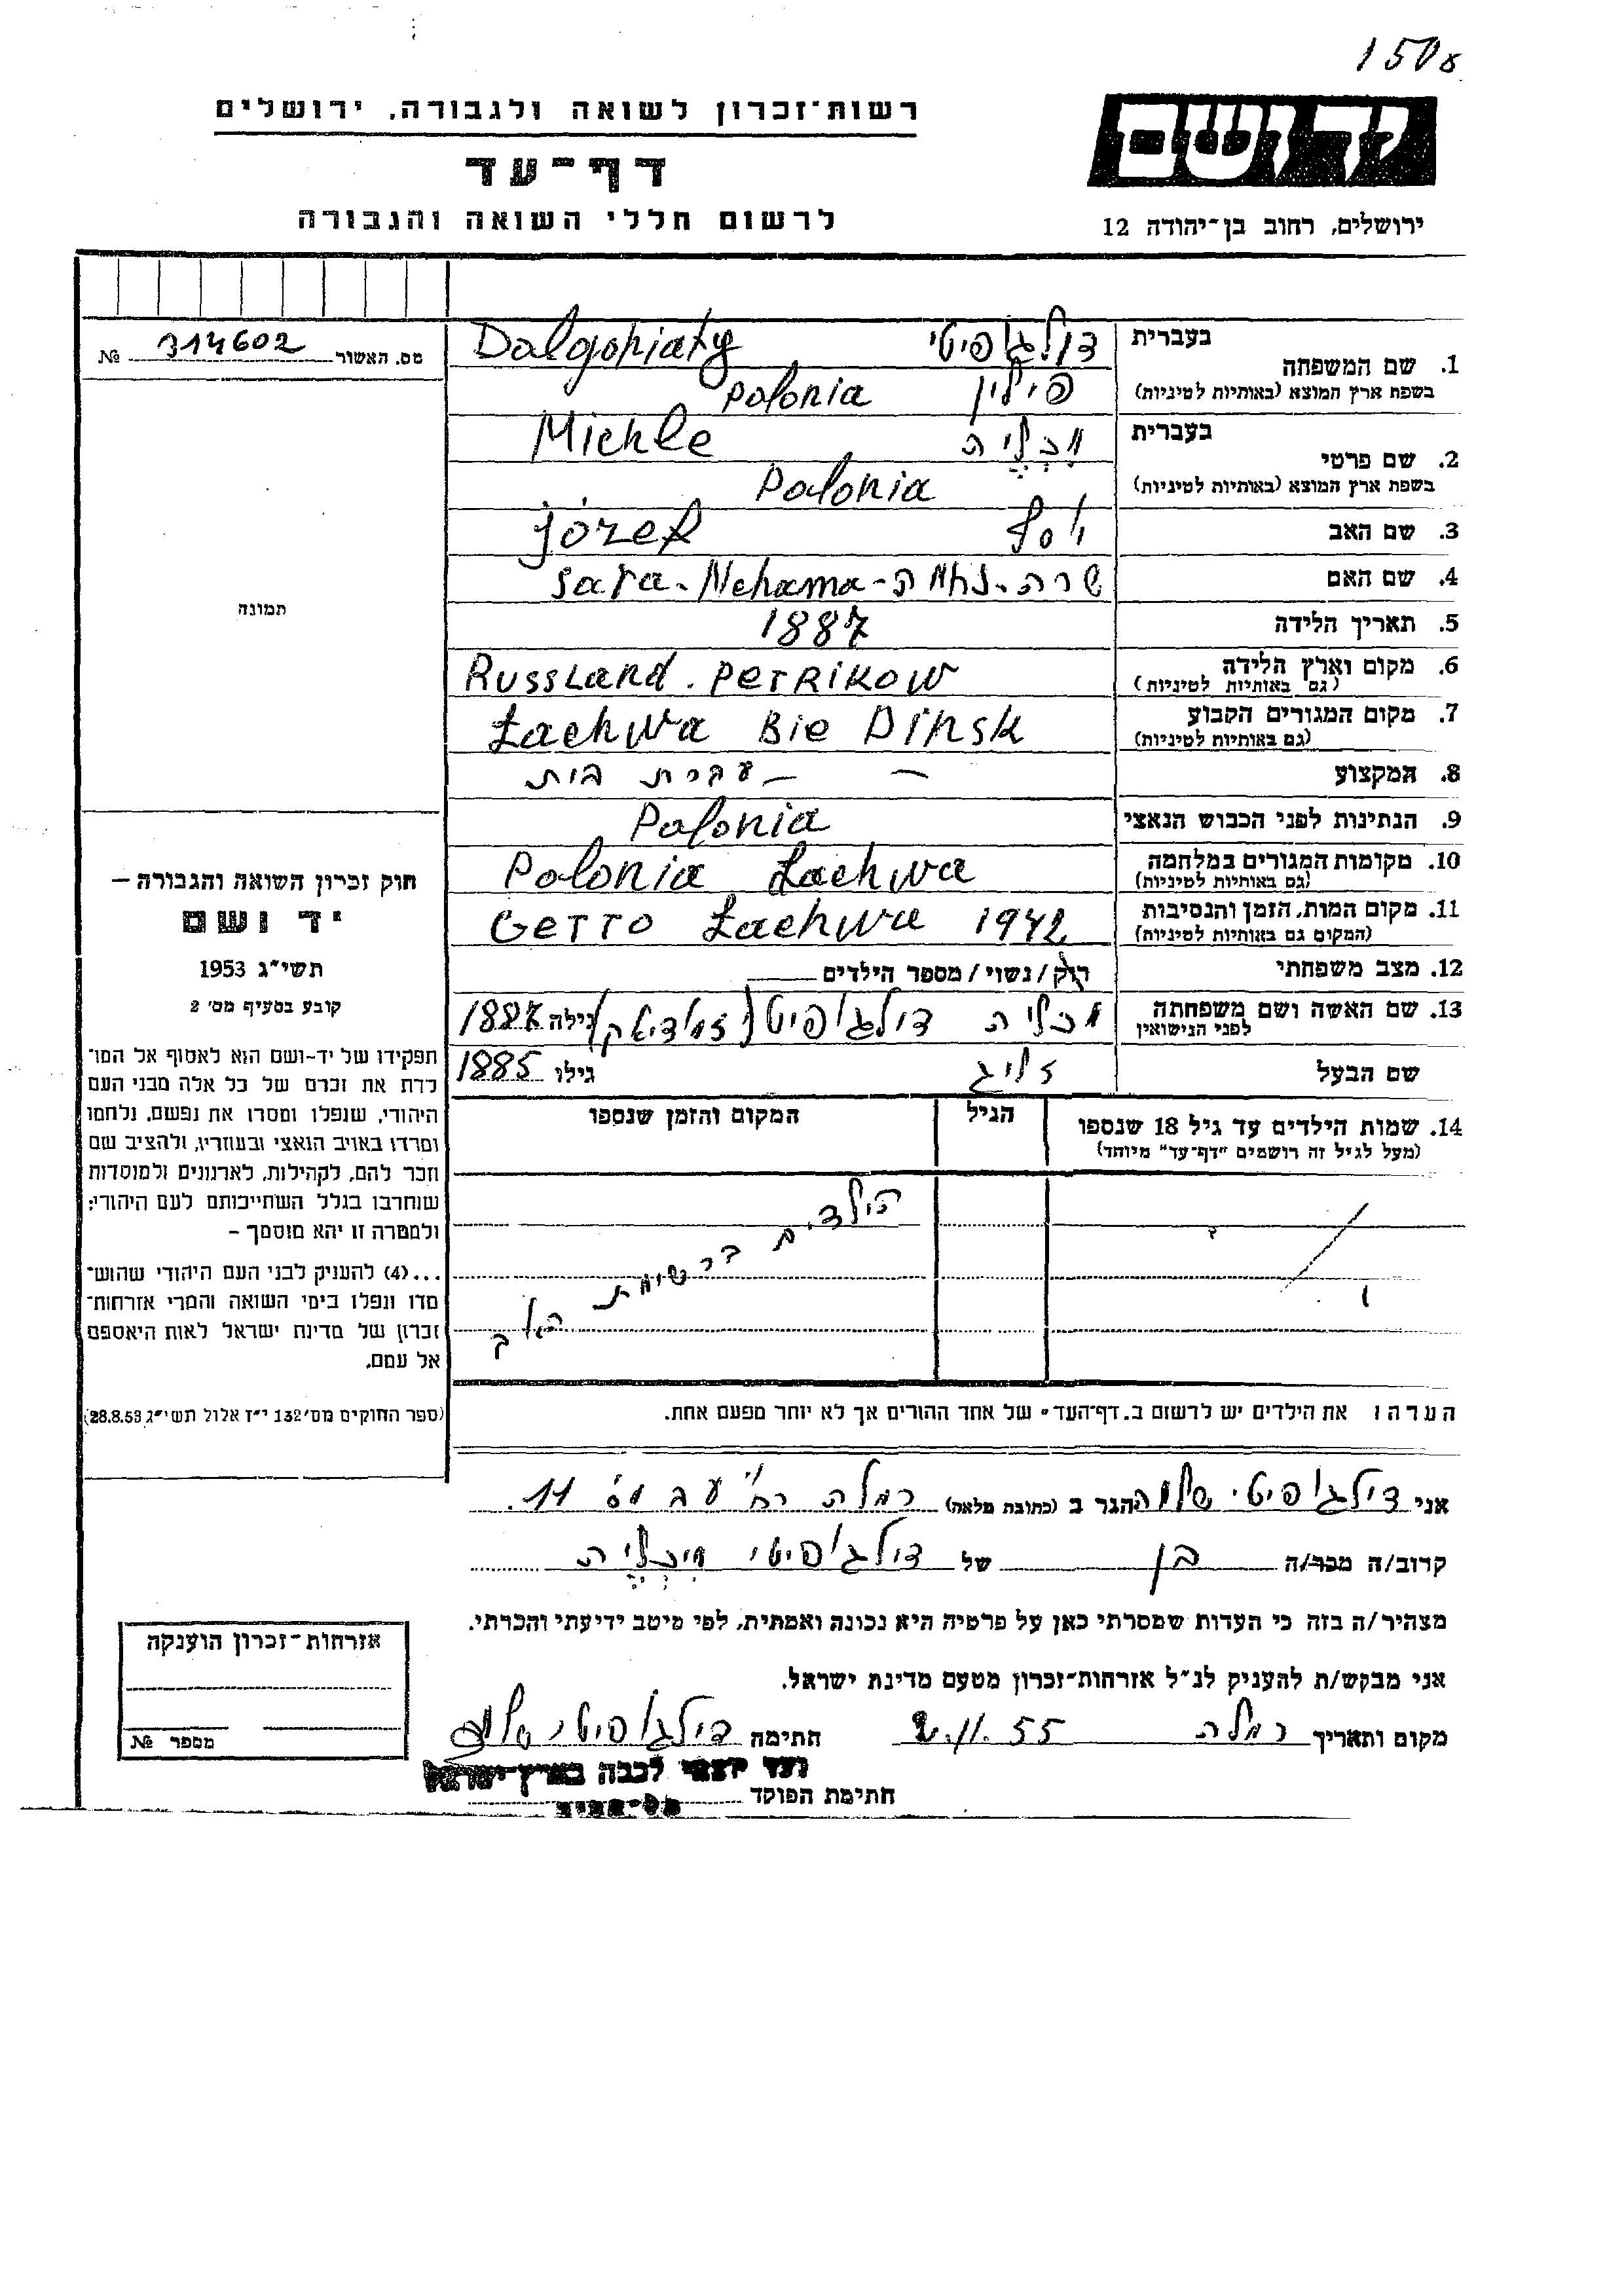 150
רשות־זכרון לשואה ולגבורה, ירושלים
דף־עד
לרשום חללי השואה והגבורה
יד ושם
ירושלים, רחוב בן־יהודה 12
מס. האשור 314602 №
1. שם המשפחה בעברית דולגופיטי Dalgopiaty
בשפת ארץ המוצא (באותיות לטיניות) פולין Polonia
2. שם פרטי בעברית מכליה Michle
בשפת ארץ המוצא (באותיות לטיניות) Polonia
3. שם האב יוסף józef
4. שם האם שרה-נחמה - Sara-Nehama
5. תאריך הלידה 1887
6. מקום וארץ הלידה RussLand. PETRIKOW
(גם באותיות לטיניות)
7. מקום המגורים הקבוע Łachwa Bie Pinsk
(גם באותיות לטיניות)
8. המקצוע — עקרת בית —
9. הנתינות לפני הכבוש הנאצי Polonia
10. מקומות המגורים במלחמה Polonia Łachwa
(גם באותיות לטיניות)
11. מקום המות, הזמן והנסיבות GETTO Łachwa 1942
(המקום גם באותיות לטיניות)
12. מצב משפחתי רוק/נשוי/מספר הילדים
13. שם האשה ושם משפחתה מכליה דולגופיטי גילה 1887
לפני הנישואין
שם הבעל זליג גילו 1885
14. שמות הילדים עד גיל 18 שנספו הגיל המקום והזמן שנספו
(מעל לגיל זה רושמים "דף־עד" מיוחד)
הילדים ברשימת האב
הערה: את הילדים יש לרשום ב„דף־העד" של אחד ההורים אך לא יותר מפעם אחת.
תמונה
חוק זכרון השואה והגבורה —
יד ושם
תשי"ג 1953
קובע בסעיף מס' 2
תפקידו של יד־ושם הוא לאסוף אל המו־
לדת את זכרם של כל אלה מבני העם
היהודי, שנפלו ומסרו את נפשם, נלחמו
ומרדו באויב הנאצי ובעוזריו, ולהציב שם
וזכר להם, לקהילות, לארגונים ולמוסדות
שנחרבו בגלל השתייכותם לעם היהודי;
ולמטרה זו יהא מוסמך —
...(4) להעניק לבני העם היהודי שהוש־
מדו ונפלו בימי השואה והמרי אזרחות־
זכרון של מדינת ישראל לאות היאספם
אל עמם.
(ספר החוקים מס' 132 י"ז אלול תשי"ג 28.8.53)
אני דולגופיטי שלמה הגר ב (כתובת מלאה) רמלה רח' עב מס 11.
קרוב/ה מכר/ה בן של דולגופיטי מיכליה
מצהיר/ה בזה כי העדות שמסרתי כאן על פרטיה היא נכונה ואמתית, לפי מיטב ידיעתי והכרתי.
אני מבקש/ת להעניק לנ"ל אזרחות־זכרון מטעם מדינת ישראל.
מקום ותאריך רמלה 2.11.55 חתימה דולגופיטי שלמה
חתימת הפוקד ועד יוצאי לכבה בארץ־ישראל
תל־אביב
אזרחות־זכרון הוענקה
מספר №